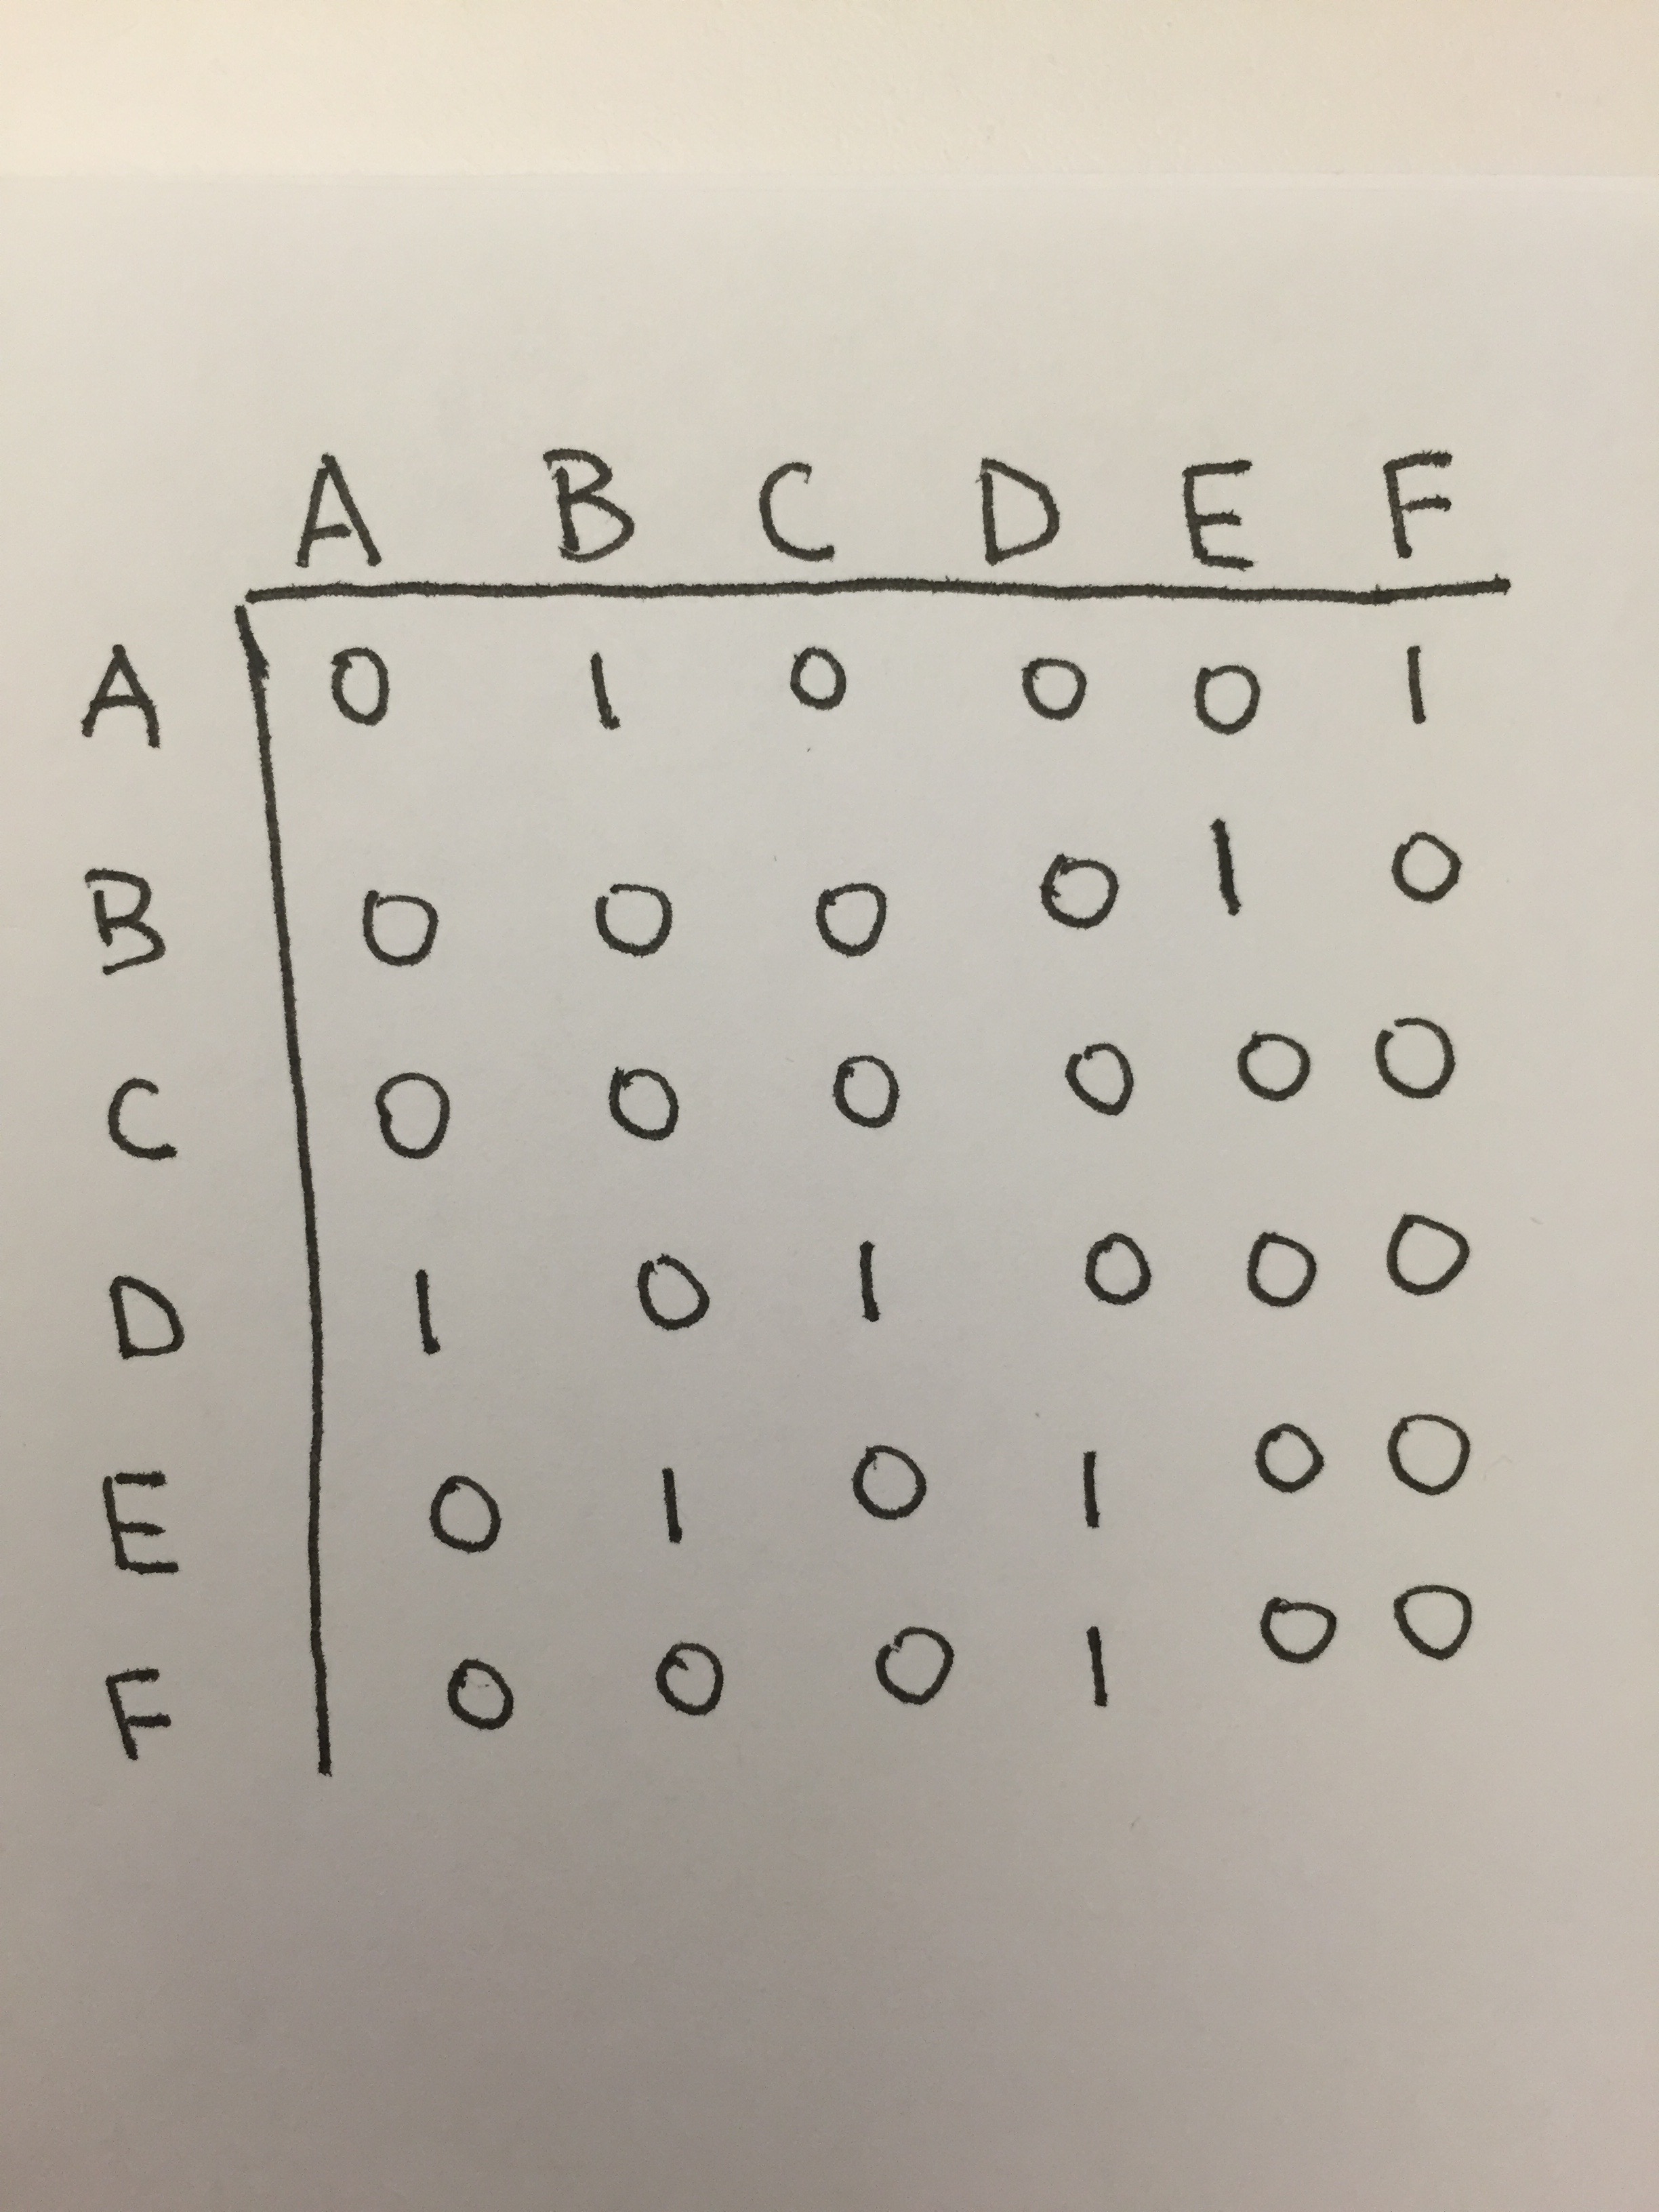 A B C D E F
A 0 1 0 0 0 1
B 0 0 0 0 1 0
C 0 0 0 0 0 0
D 1 0 1 0 0 0
E 0 1 0 1 0 0
F 0 0 0 1 0 0